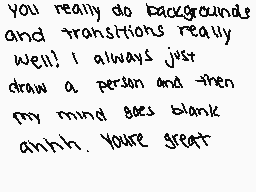 you really do backgrounds
and transitions really
well! I always just
draw a person and then
my mind goes blank
ahhh. Youre great